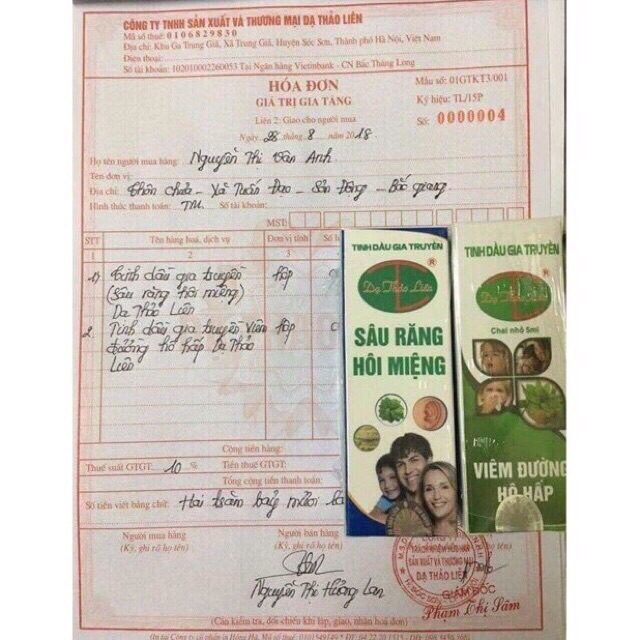 CÔNG TY TNHH SẢN XUẤT VÀ THƯƠNG MẠI DẠ THẢO LIÊN
Mã số thuế: 0106829830
Địa chỉ: Khu Ga Trung Giã, Xã Trung Giã, Huyện Sóc Sơn, Thành phố Hà Nội, Việt Nam
Điện thoại:
Số tài khoản: 102010002260053 Tại Ngân hàng Vietinbank - CN Bắc Thăng Long
HÓA ĐƠN
GIÁ TRỊ GIA TĂNG
Liên 2: Giao cho người mua
Ngày 28 tháng 8 năm 2018
Mẫu số: 01GTKT3/001
Ký hiệu: TL/15P
Số: 0000004
Họ tên người mua hàng: Nguyễn Thị Vân Anh
Tên đơn vị:
Địa chỉ: Thôn chùa - Xã Tuấn Đạo - Sơn Động - Bắc giang
Hình thức thanh toán: TM. Số tài khoản:
MST:
STT Tên hàng hoá, dịch vụ Đơn vị tính
1 2 3
1) Tinh dầu gia truyền hộp
(Sâu răng hôi miệng)
Dạ Thảo Liên
2 Tinh dầu gia truyền viêm hộp
đường hô hấp Dạ Thảo
Liên
Cộng tiền hàng:
Thuế suất GTGT: 10 % Tiền thuế GTGT:
Tổng cộng tiền thanh toán:
Số tiền viết bằng chữ: Hai trăm bảy mươi
Người mua hàng
(Ký, ghi rõ họ tên)
Người bán hàng
(Ký, ghi rõ họ tên)
Nguyễn Thị Hương Lan
TRÁCH NHIỆM HỮU HẠN
SẢN XUẤT VÀ THƯƠNG MẠI
DẠ THẢO LIÊN
GIÁM ĐỐC
Phạm Thị Sâm
(Cần kiểm tra, đối chiếu khi lập, giao, nhận hoá đơn)
TINH DẦU GIA TRUYỀN
Dạ Thảo Liên
®
SÂU RĂNG
HÔI MIỆNG
TINH DẦU GIA TRUYỀN
Dạ Thảo Liên
®
Chai nhỏ 5ml
VIÊM ĐƯỜNG
HÔ HẤP